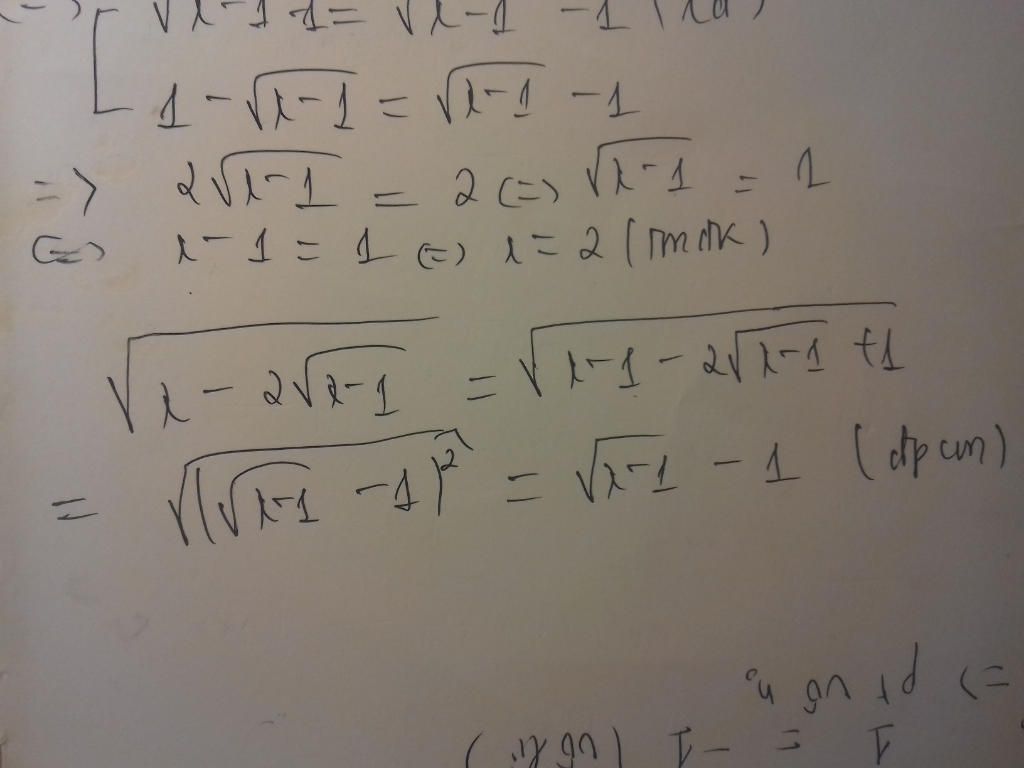 √(x-1) - 1 = √(x-1) - 1 (lđ)
1 - √(x-1) = √(x-1) - 1
=> 2√(x-1) = 2 (=) √(x-1) = 1
(=) x - 1 = 1 (=) x = 2 (TMĐK)
√(x - 2√(x-1)) = √(x-1 - 2√(x-1) + 1)
= √((√(x-1) - 1)²) = √(x-1) - 1 (đpcm)
=> pt vô n
1 = -1 (vô lí)